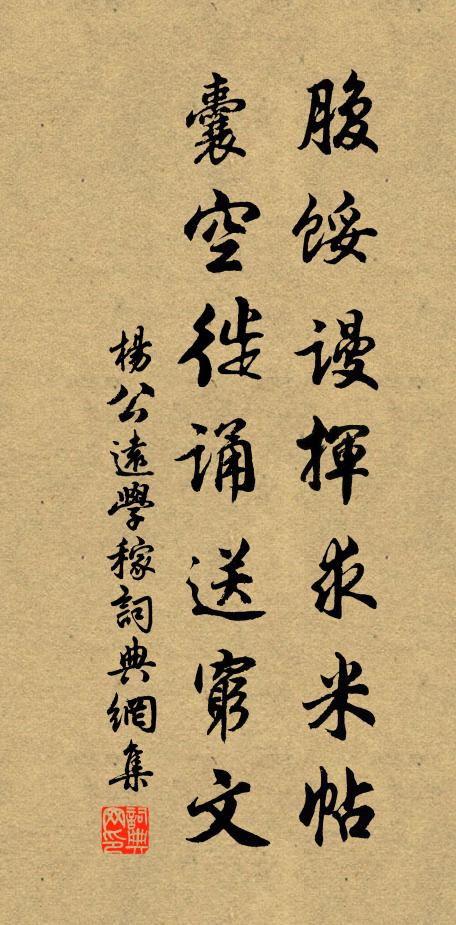 腹餒謾揮求米帖
囊空徙誦送窮文
楊公遠學稼詞典網集
詞典網印